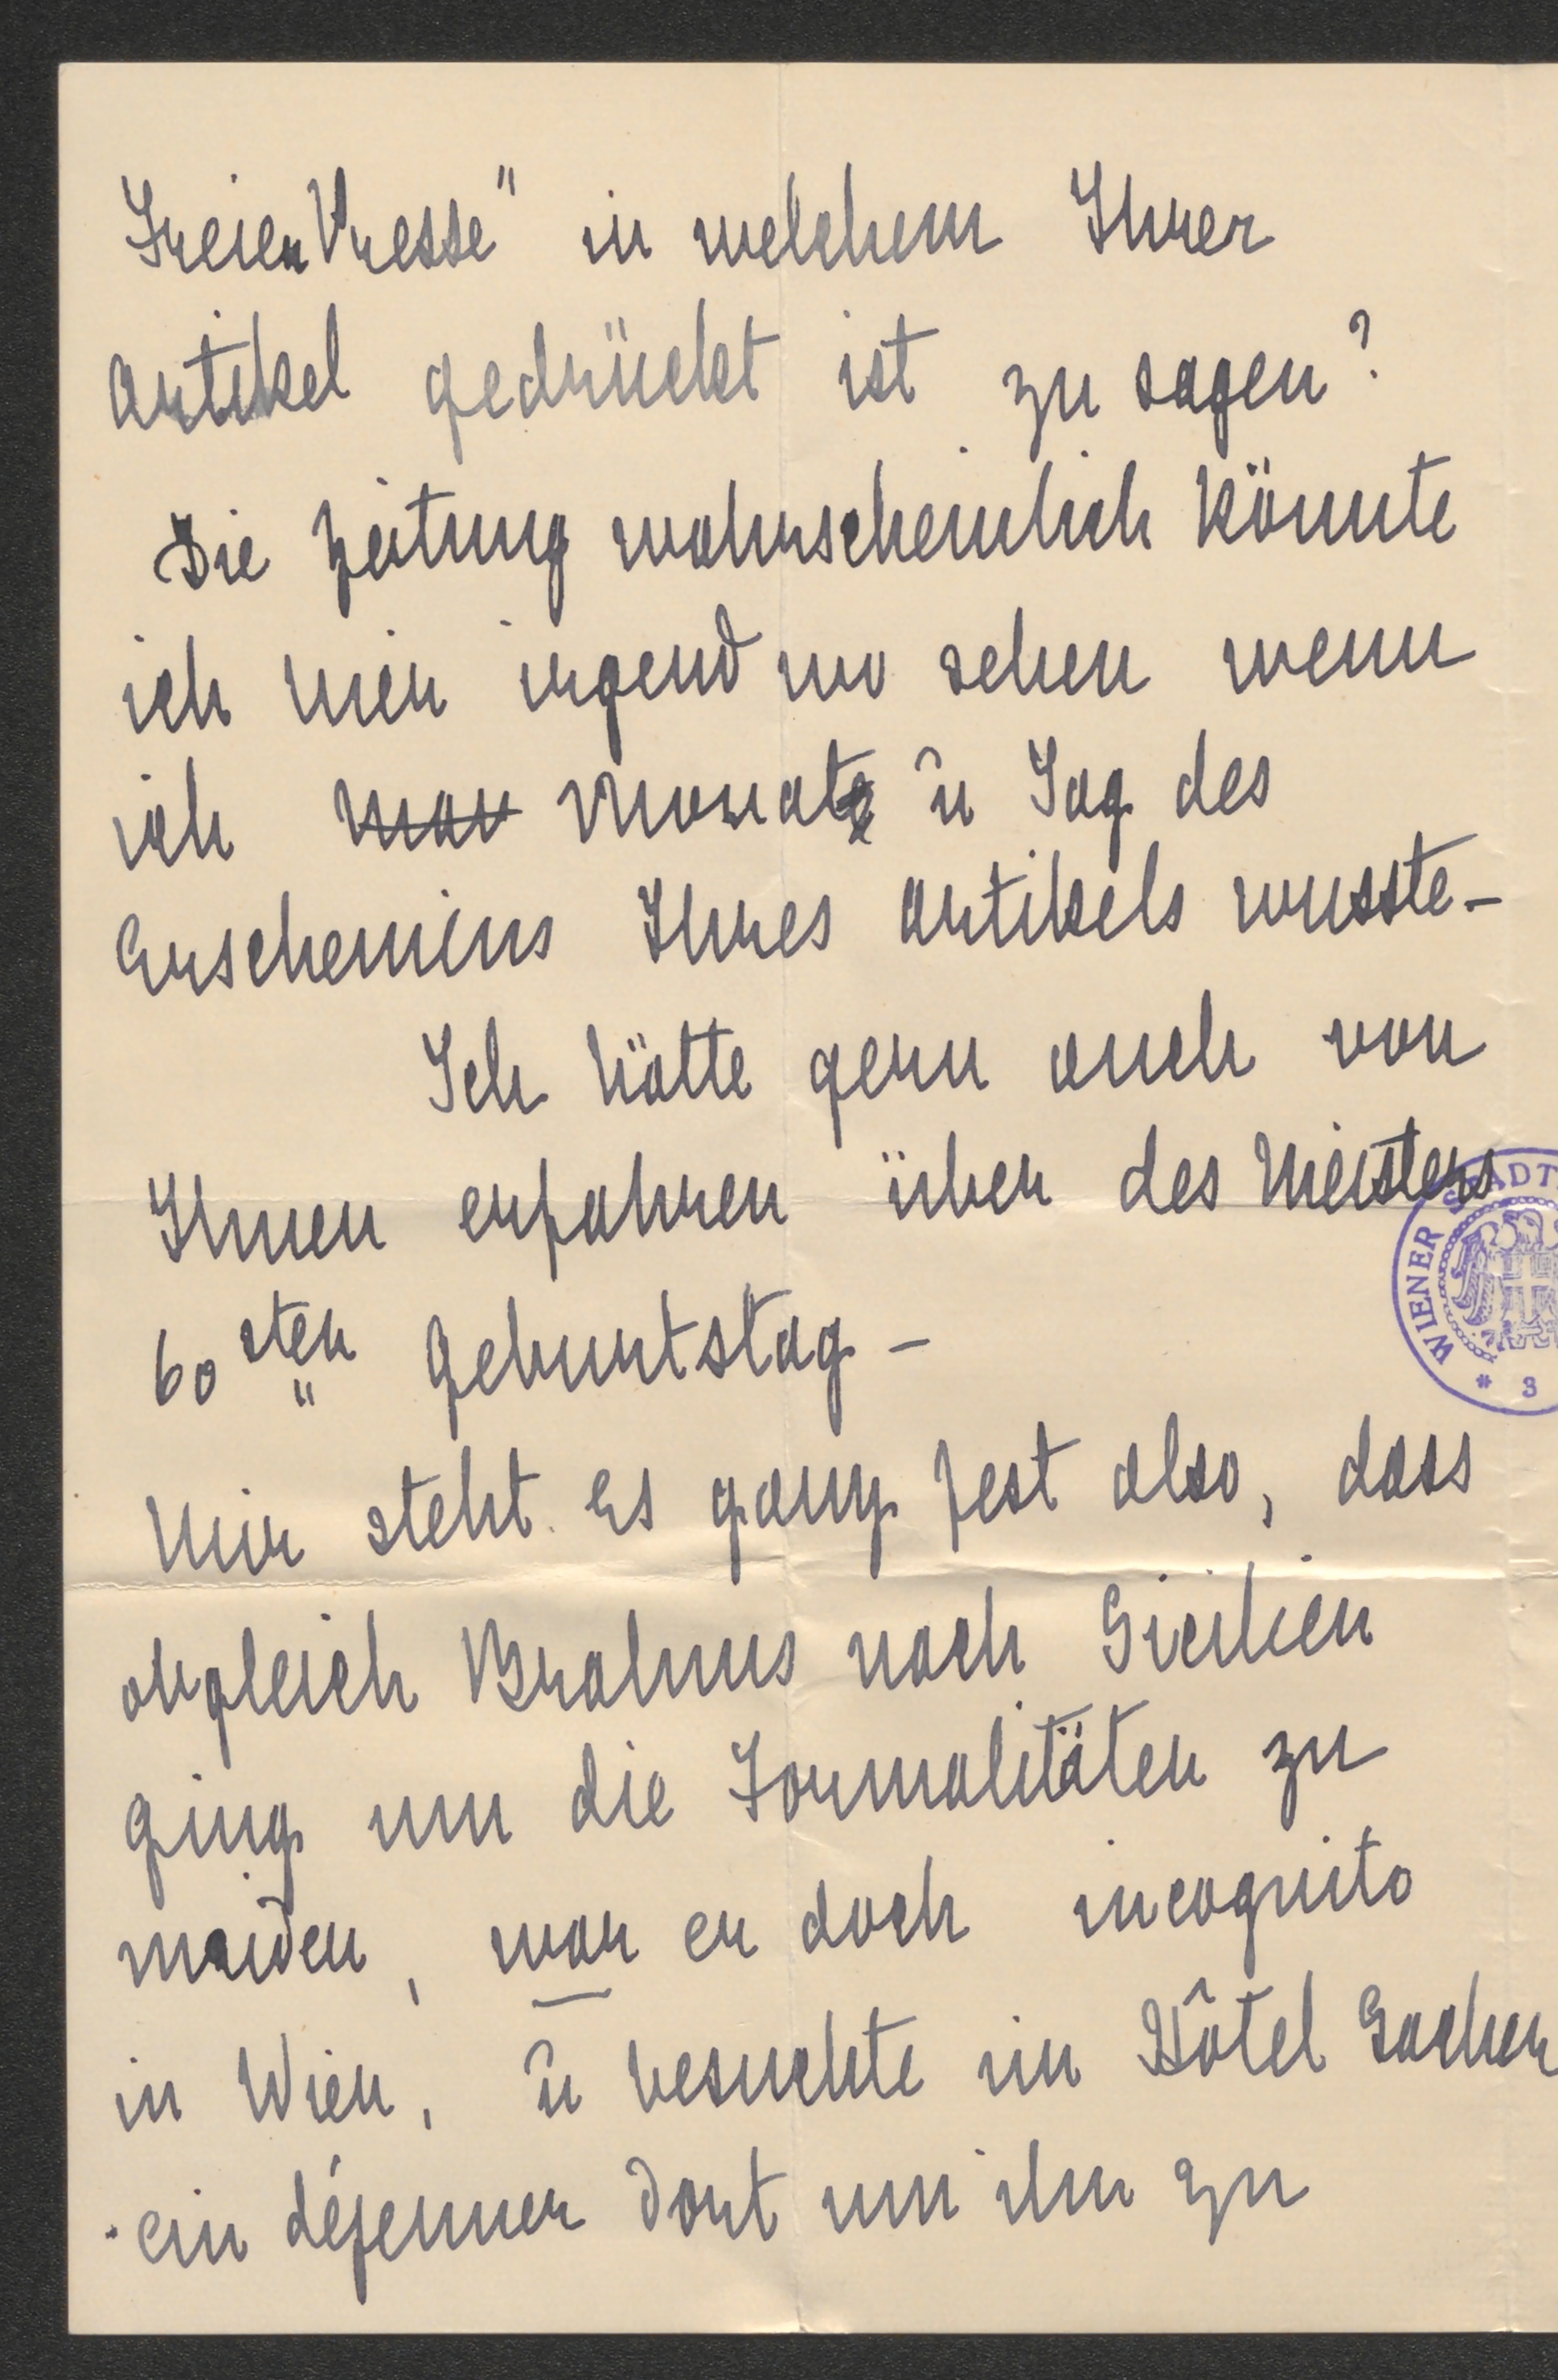 Freien Presse" in welchem Ihrer
Artikel gedrückt ist zu sagen?
Die Zeitung wahrscheinlich könnte
ich hier irgend wo sehen wenn
ich Monat u Tag des
Erscheinens Ihres Artikels wusste –
Ich hätte gern auch von
Ihnen erfahren über des Meisters
60sten Geburtstag –
Mir steht es ganz fest also, dass
obgleich Brahms nach Sicilien
ging um die Formalitäten zu
meiden, war er doch incognito
in Wien, u besuchte im Hôtel Sacher
ein déjeuner dort um ihn zu
WIENER STADT
* 3